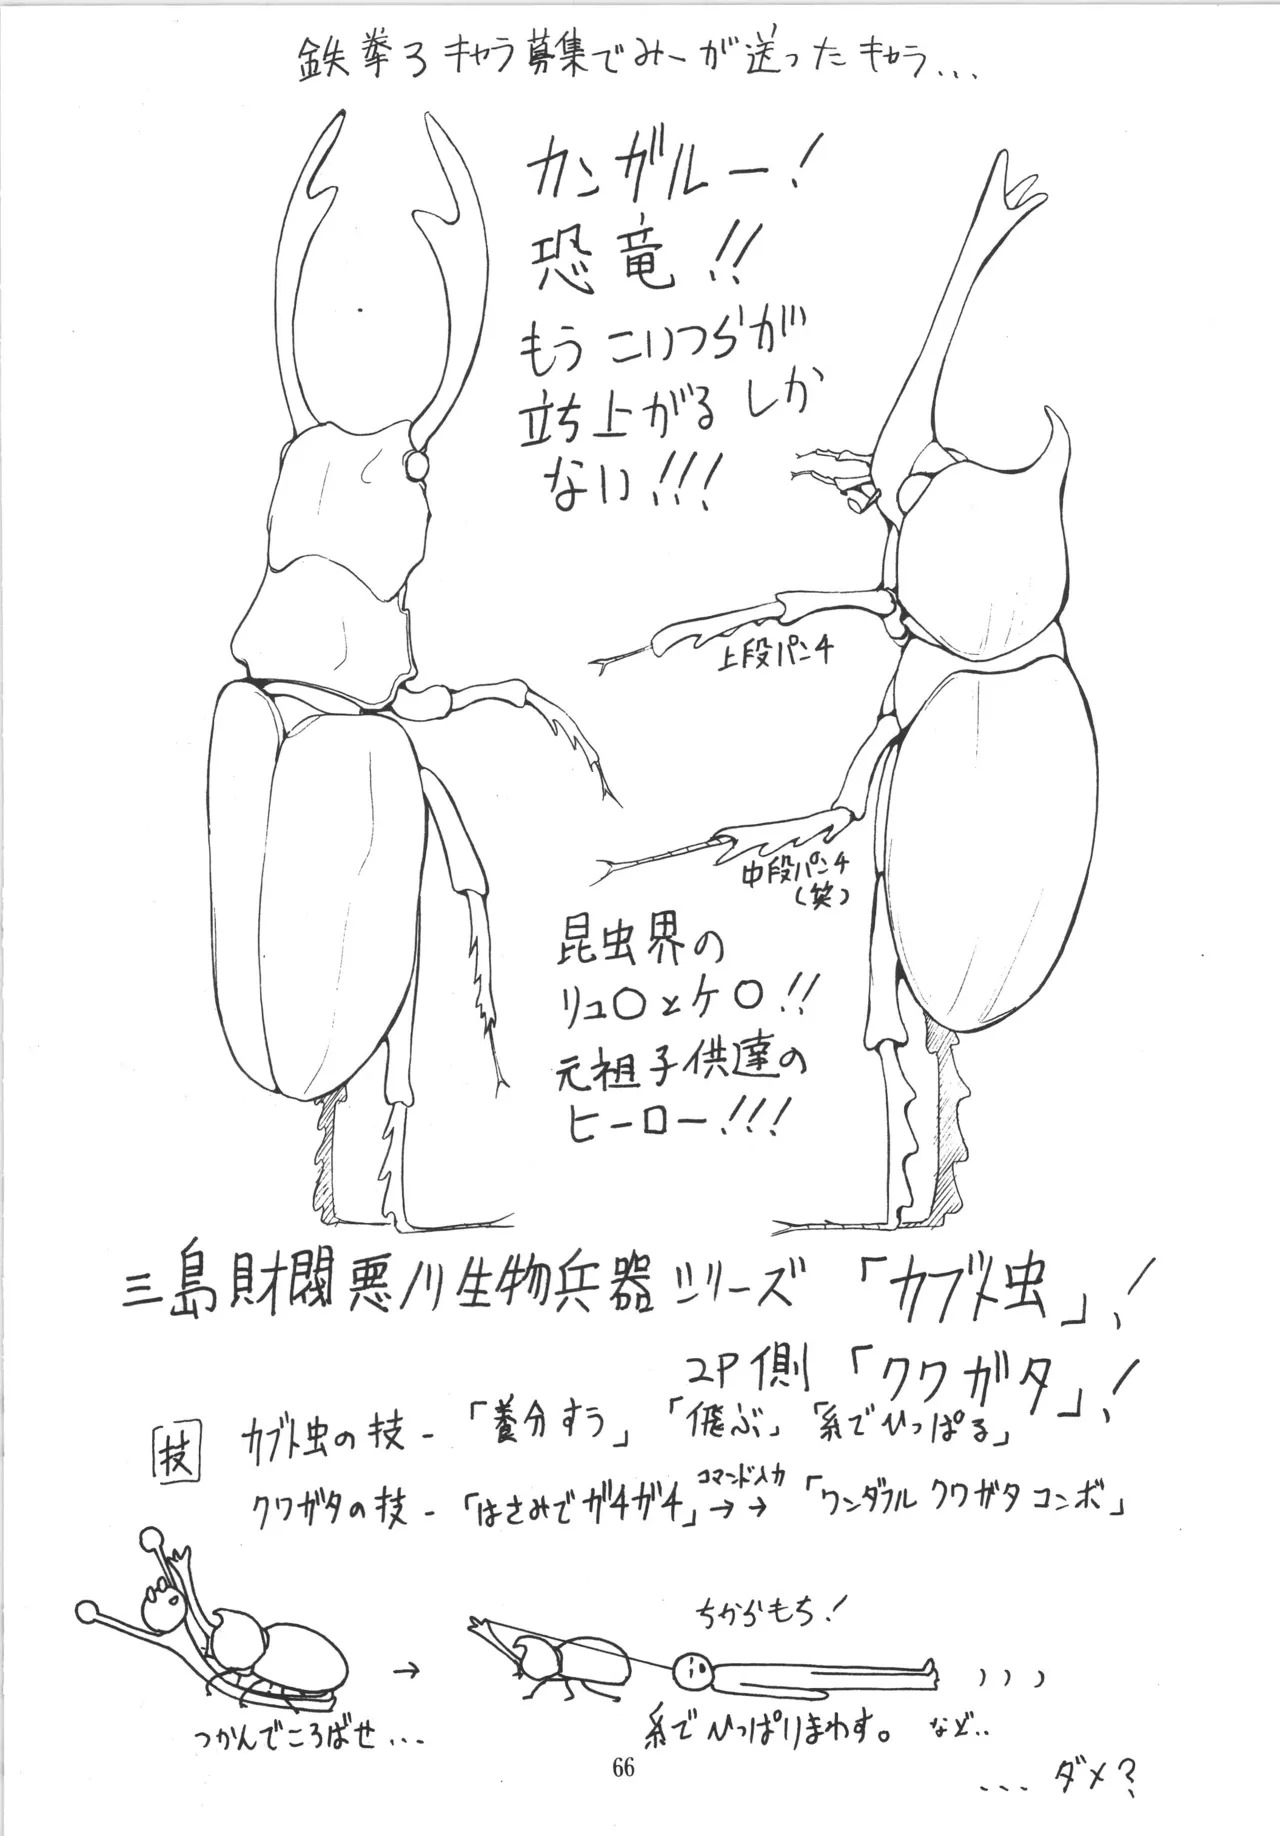 鉄拳3キャラ募集でみーが送ったキャラ...
カンガルー!
恐竜!!
もうこいつらが
立ち上がるしか
ない!!!
上段パンチ
中段パンチ
(笑)
昆虫界の
リュ〇とケ〇!!
元祖子供達の
ヒーロー!!!
三島財閥悪ノリ生物兵器シリーズ「カブト虫」!
2P側「クワガタ」!
技
カブト虫の技-「養分すう」「飛ぶ」「糸でひっぱる」
クワガタの技-「はさみでガチガチ」→→「ワンダフルクワガタコンボ」
コマンド入力
ちからもち!
→
つかんでころばせ...
糸でひっぱりまわす。など..
...ダメ?
66